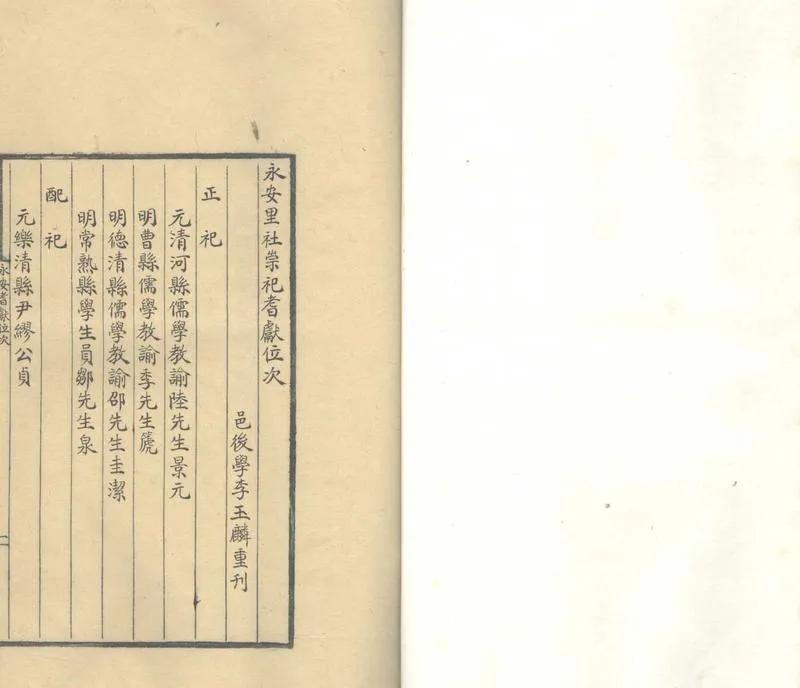 永安里社崇祀耆獻位次
邑後學李玉麟重刊
正祀
元清河縣儒學教諭陸先生景元
明曹縣儒學教諭季先生篪
明德清縣儒學教諭邵先生圭潔
明常熟縣學生員鄒先生泉
配祀
元樂清縣尹繆公貞
永安耆獻位次